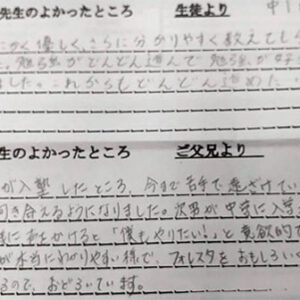 先生のよかったところ 生徒より 中1
かく優しく、さらに分かりやすく教えてくら
。勉強がどんどん進んで勉強が好
ました。これからもどんどん進めた
生のよかったところ ご父兄より
が入塾したところ、今まで苦手で遠ざけてい
向き合えるようになりました。次男が中学に入学
に声をかけると「僕もやりたい!」と意欲的で
が本当にわかりやすい様で、フォレスタをおもしろい
るので、おどろいています。